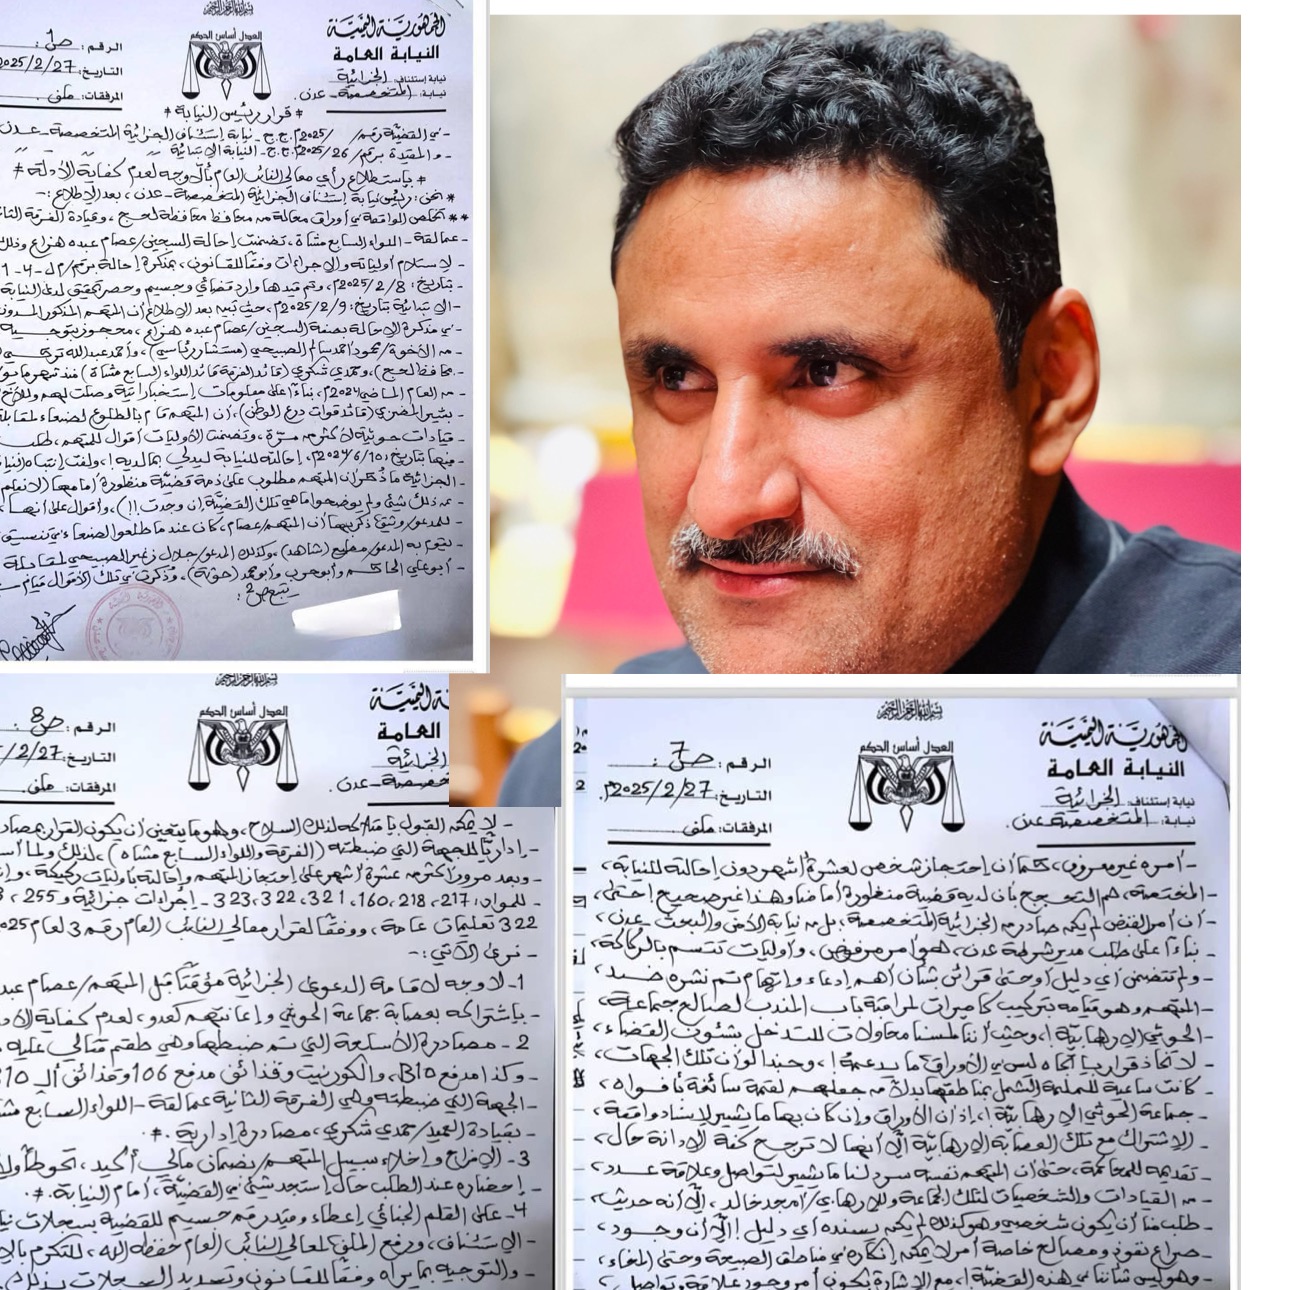 بسم الله الرحمن الرحيم
الجمهورية اليمنية
النيابة العامة
نيابة إستئناف: الجزائية
نيابة: المتخصصة - عدن.
العدل أساس الحكم
الرقم: ص1:
التاريخ: 2025/2/27
المرفقات: ملف.
* قرار رئيس النيابة *
- في القضية رقم / / 2025م ج.ج - نيابة إستئناف الجزائية المتخصصة - عدن
- والمقيدة برقم / 26 / 2025م ج.ج - النيابة الإبتدائية
* بإستطلاع رأي معالي النائب العام بألا وجه لعدم كفاية الأدلة *
* نحن: رئيس نيابة إستئناف الجزائية المتخصصة - عدن، بعد الإطلاع:-
** تتلخص الواقعة في أوراق محالة من محافظ محافظة لحج، وقيادة الفرقة
عمالقة - اللواء السابع مشاة، تضمنت إحالة السجين/ عصام عبده هزاع وذلك
لإستلام أولياته والإجراءات وفقاً للقانون، بمذكرة إحالة برقم/
بتاريخ: 2025/2/8م، وتم قيدها وارد قضائي وجسيم وحصر تحقيق لدى النيابة
- الإبتدائية بتاريخ: 2025/2/9م، حيث تبين بعد الإطلاع أن المتهم المذكور المدون
- في مذكرة الإحالة بصفة السجين/ عصام عبده هزاع، محجوز بتوجيه
- من الأخوة/ محمود أحمد سالم الصبيحي (مستشار رئاسي)، وأحمد عبدالله تركي
محافظ لحج)، وحمدي شكري (قائد الفرقة قائد اللواء السابع مشاة) منذ شهر مايو
- من العام الماضي 2024م، بناءاً على معلومات إستخباراتية وصلت لهم وللأخ
بشير المضربي (قائد قوات درع الوطن)، أن المتهم قام بالطلوع لصنعاء لمقابلة
قيادات حوثية لأكثر من مرة، وتضمنت الأوليات أقوال للمتهم، طلب
- فيها بتاريخ: 2024/6/10م، إحالته للنيابة ليدلي بما لديه!، ولفت إنتباه
الجزائية ما ذكر أن المتهم مطلوب على ذمة قضية منظورة أمامها
عن ذلك شيئ ولم يوضحوا ماهي تلك القضية (إن وجدت!!)، وأقوال على أنها
- للمدعو/ وثيق ذكر بها أن المتهم/ عصام، كان عندما طلعوا لصنعاء في تنسيق
ليقوم به المدعو/ مطيع (شاهد)، وكذلك المدعو/ جلال زغير الصبيحي لمقابلة
- أبوعلي الحاكم وأبوحرب وأبومحمد (حوثة)، وذكرت في تلك الأقوال قيام
يتبع ص2:
بسم الله الرحمن الرحيم
العامة
الجزائية
المتخصصة - عدن.
العدل أساس الحكم
الرقم: ص8:
التاريخ: 2/27
المرفقات: ملف.
- لا يمكن القول بإمتلاكه لذلك السلاح، وهو ما يتعين أن يكون القرار بمصادرته
- إدارياً للجهة التي ضبطته (الفرقة واللواء السابع مشاه)، لذلك ولما
- وبعد مرور أكثر من عشرة أشهر على إحتجاز المتهم وإحالته بأوليات ركيكة،
للمواد: 217، 218، 160، 321، 322، 323 - إجراءات جزائية و 255،
322 تعليمات عامة، ووفقاً لقرار معالي النائب العام رقم 3 لعام 2025
- نرى الآتي:-
1- لا وجه لإقامة الدعوى الجزائية مؤقتاً قبل المتهم/ عصام عبده
- بإشتراكه بعصابة جماعة الحوثي وإعانتهم كعدو، لعدم كفاية
2 - مصادرة الأسلحة التي تم ضبطها وهي طقم قتالي عليه
- وكذا مدفع B10، والكورنيت وقذائف مدفع 106 وقذائف الـ B10
- الجهة التي ضبطته وهي الفرقة الثانية عمالقة - اللواء السابع مشاة
- بقيادة العميد/ حمدي شكري، مصادرة إدارية.
3- الإفراج وإخلاء سبيل المتهم/ بضمان مالي أكيد، تحوطاً
- إحضاره عند الطلب حال إستجد شيئ في القضية، أمام النيابة.
4- على القلم الجنائي إعطاء وقيد رقم جسيم للقضية بسجلات
- الإستئناف، ورفع الملف لمعالي النائب العام حفظه الله، للتكرم
- والتوجيه بما يراه وفقاً للقانون وتسديد السجلات بذلك.
بسم الله الرحمن الرحيم
الجمهورية اليمنية
النيابة العامة
نيابة إستئناف: الجزائية
نيابة: المتخصصة عدن.
العدل أساس الحكم
الرقم: ص7:
التاريخ: 2025/2/27م
المرفقات: ملف
- أمره غير معروف، كما أن إحتجاز شخص لعشرة أشهر دون إحالته للنيابة،
- المختصة، ثم التحجج بأن لديه قضية منظورة أمامنا وهذا غير صحيح إحتلى،
- أن أمر القبض لم يكن صادر من الجزائية المتخصصة؛ بل من نيابة الأمن والبحث - عدن،
بناءاً على طلب مدير شرطة عدن، هو أمر مرفوض، وأوليات تتسم بالركاكة،
- ولم تتضمن أي دليل أو حتى قرائن بشأن أهم إدعاء وإتهام تم نشره ضد
- المتهم وهو قيامه بتركيب كاميرات لمراقبة باب المندب لصالح جماعة
- الحوثي الإرهابية!، وحيث أننا لمسنا محاولات للتدخل بشئون القضاء،
لإتخاذ قرار بإتجاه ليس في الأوراق ما يدعمه!، وحبذا لو أن تلك الجهات،
- كانت ساعية للملمة الشمل بمناطقها بدلاً من جعلهم لقمة سائغة بأفواه
جماعة الحوثي الإرهابية!، إذ أن الأوراق وإن كان بها ما يشير لإسناد واقعة
- الإشتراك مع تلك العصابة الإرهابية إلا أنها لا ترجح كفة الإدانة حال
- تقديمه للمحاكمة، حتى أن المتهم نفسه سرد لنا ما يشير لتواصل وعلاقة عدد
- من القيادات والشخصيات لتلك الجماعة وللإرهابي/ أمجد خالد، إلا أنه حديث
- طلب منا أن يكون شخصي وهو كذلك لم يكن يسنده أي دليل! إلا أن وجود
- صراع نفوذ ومصالح خاصة أمر لا يمكن إنكاره في مناطق الصبيحة وحتى المخاء،
- وهو ليس شأننا في هذه القضية!، مع الإشارة لكون أمر وجود علاقة وتواصل